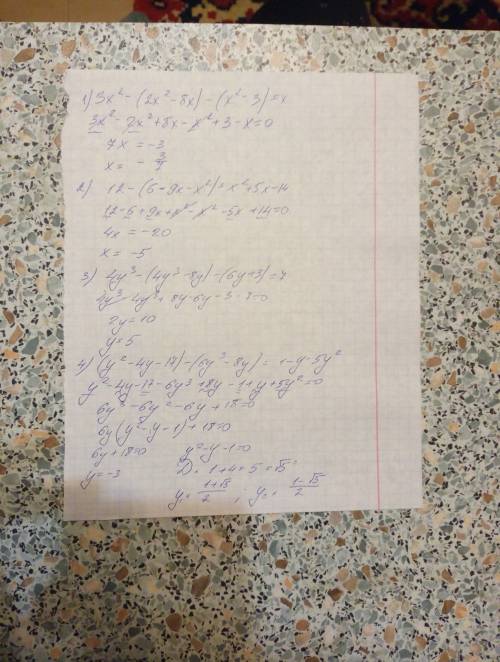 1) 3x² - (2x² - 8x) - (x² - 3) = x
3x² - 2x² + 8x - x² + 3 - x = 0
7x = -3
x = - 3/7
2) 12 - (6 - 9x - x²) = x² + 5x - 14
12 - 6 + 9x + x² - x² - 5x + 14 = 0
4x = -20
x = -5
3) 4y³ - (4y³ - 8y) - (6y + 3) = 7
4y³ - 4y³ + 8y - 6y - 3 - 7 = 0
2y = 10
y = 5
4) (y² - 4y - 17) - (6y² - 8y) = 1 - y - 5y²
y² - 4y - 17 - 6y³ + 8y - 1 + y + 5y² = 0
6y³ - 6y² - 6y + 18 = 0
6y (y² - y - 1) + 18 = 0
6y + 18 = 0 y² - y - 1 = 0
y = -3 D = 1 + 4 = 5 = √5
y₁ = (1+√5)/2 ; y₂ = (1-√5)/2